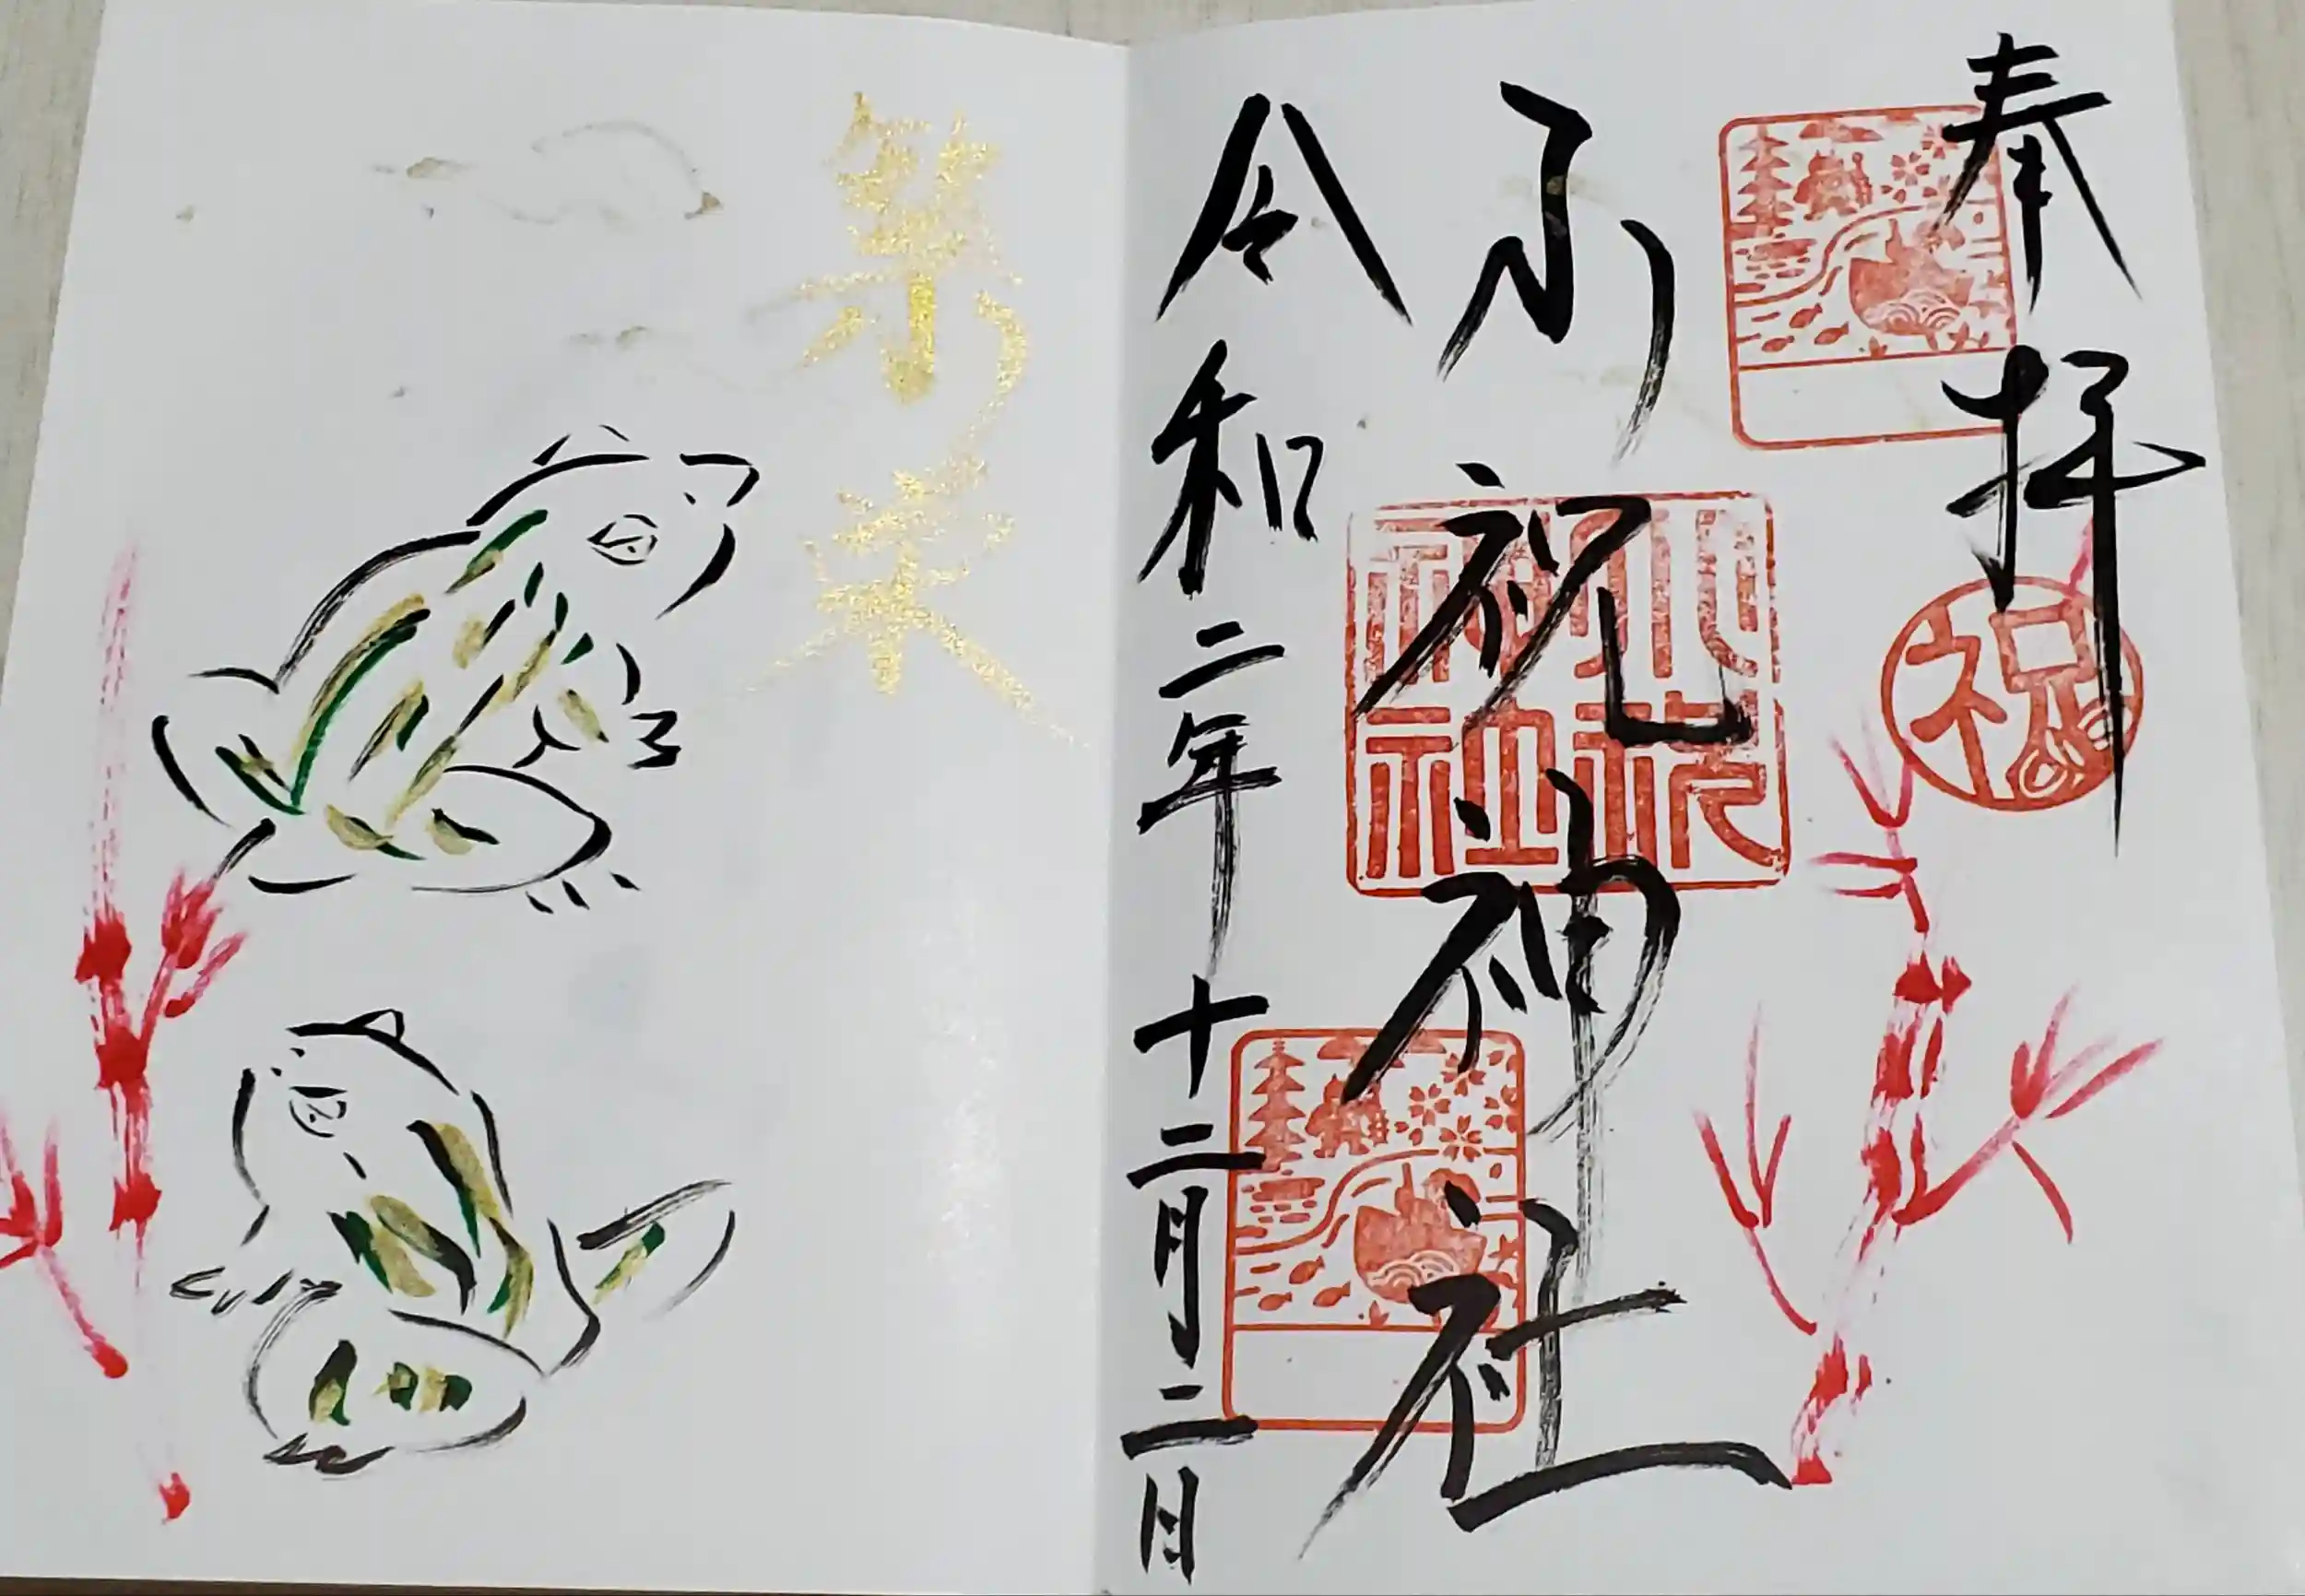 奉拝
祝
小祝神社
小祝
神社
令和二年十二月二日
繁栄